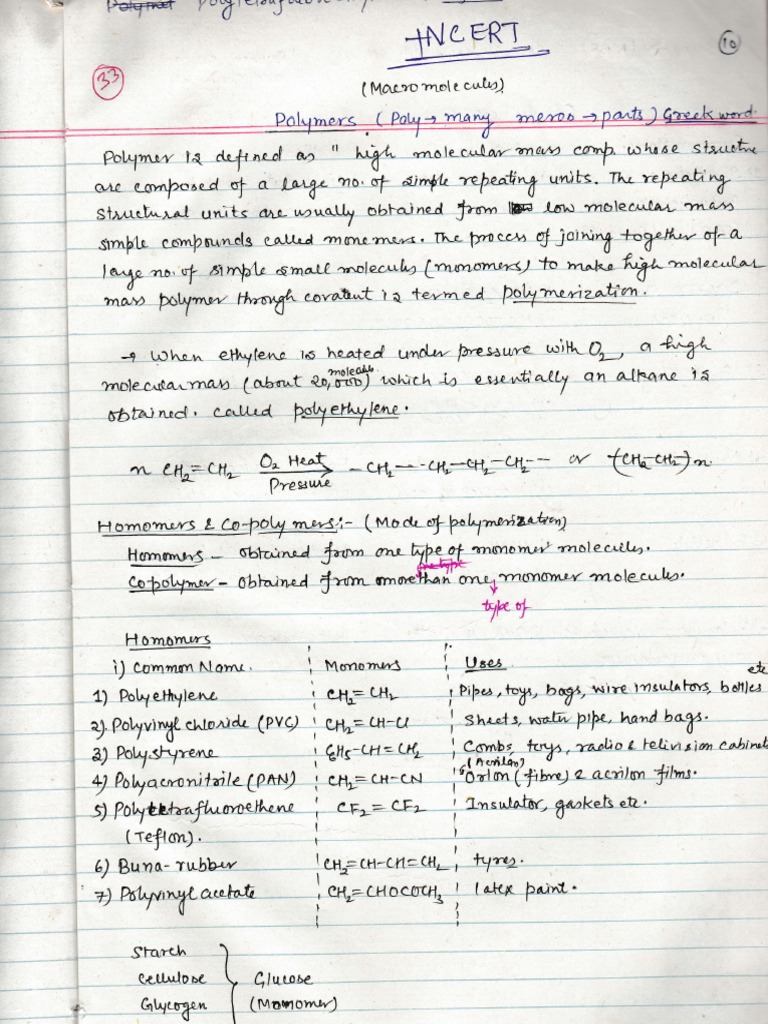 Polymer
INCERT
10
33
(Macromolecules)
Polymers (Poly→ many meros → parts) Greek word.
Polymer is defined as " high molecular mass comp. whose structure
are composed of a large no. of simple repeating units. The repeating
structural units are usually obtained from low molecular mass
simple compounds called monemers. The process of joining together of a
large no. of simple small molecules (monomers) to make high molecular
mass polymer through covatent is termed polymerization.
→ When ethylene is heated under pressure with O2, a high
molecular mass (about 20,000 molealls) which is essentially an alkane is
obtained. called polyethylene.
n CH2=CH2 O2 Heat Pressure -CH2-- -CH2-CH2-CH2-- or -(CH2-CH2-)n.
Homomers & Co-polymers:- (Mode of polymerization)
Homomers - obtained from one type of monomer molecules.
Copolymer - obtained from more than one type of monomer molecules.
Homomers
i) Common Name. Monomers Uses
1) Polyethylene CH2=CH2 Pipes, toys, bags, wire insulators, bottles etc
2). Polyvinyl chloride (PVC) CH2=CH-Cl Sheets, water pipe, hand bags.
3) Polystyrene C6H5-CH=CH2 Combs, toys, radio & telivision cabinets
4) Polyacronitrile (PAN) CH2=CH-CN Orlon (fibre) & acrilon films. (Acrilan)
5) Polytetrafluoroethene CF2=CF2 Insulator, gaskets etc.
(Teflon).
6) Buna-rubber CH2=CH-CH=CH2 tyres.
7) Polyvinyl acetate CH2=CHOCOCH3 latex paint.
Starch
Cellulose Glucose
Glycogen (Monomer)